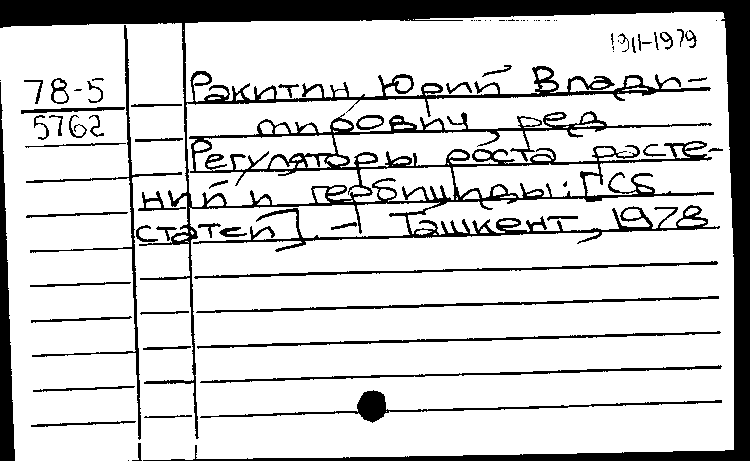 1911-1979
78-5 Ракитин, Юрий Влади-
5762 мирович, ред.
Регуляторы роста расте-
ний и гербициды: [Сб.
статей]. – Ташкент, 1978